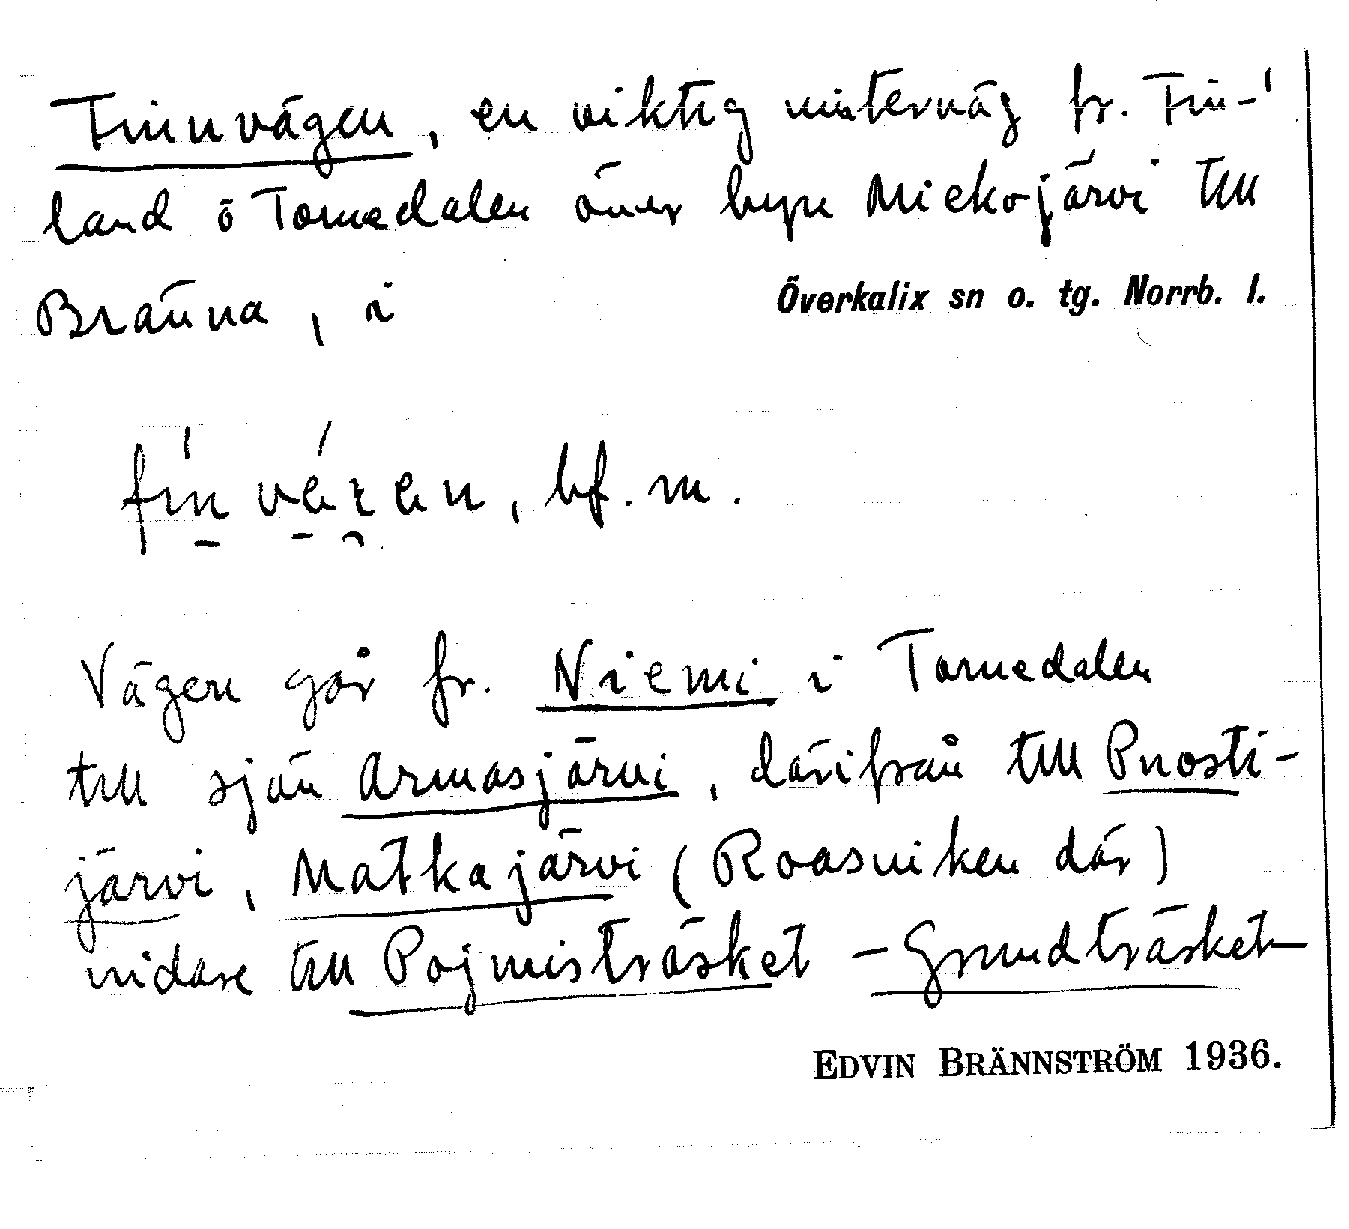 Finnvägen, en viktig vinterväg fr. Fin-
land o Tornedalen över byn Miekojärvi till
Bränna, i Överkalix sn o. tg. Norrb. l.
bf. m.
Vägen går fr. Niemi i Tornedalen
till sjön Armasjärvi, därifrån till Puosti-
järvi, Matkajärvi (Roasviken där)
vidare till Pojmisträsket – Grundträsket
EDVIN BRÄNNSTRÖM 1936.